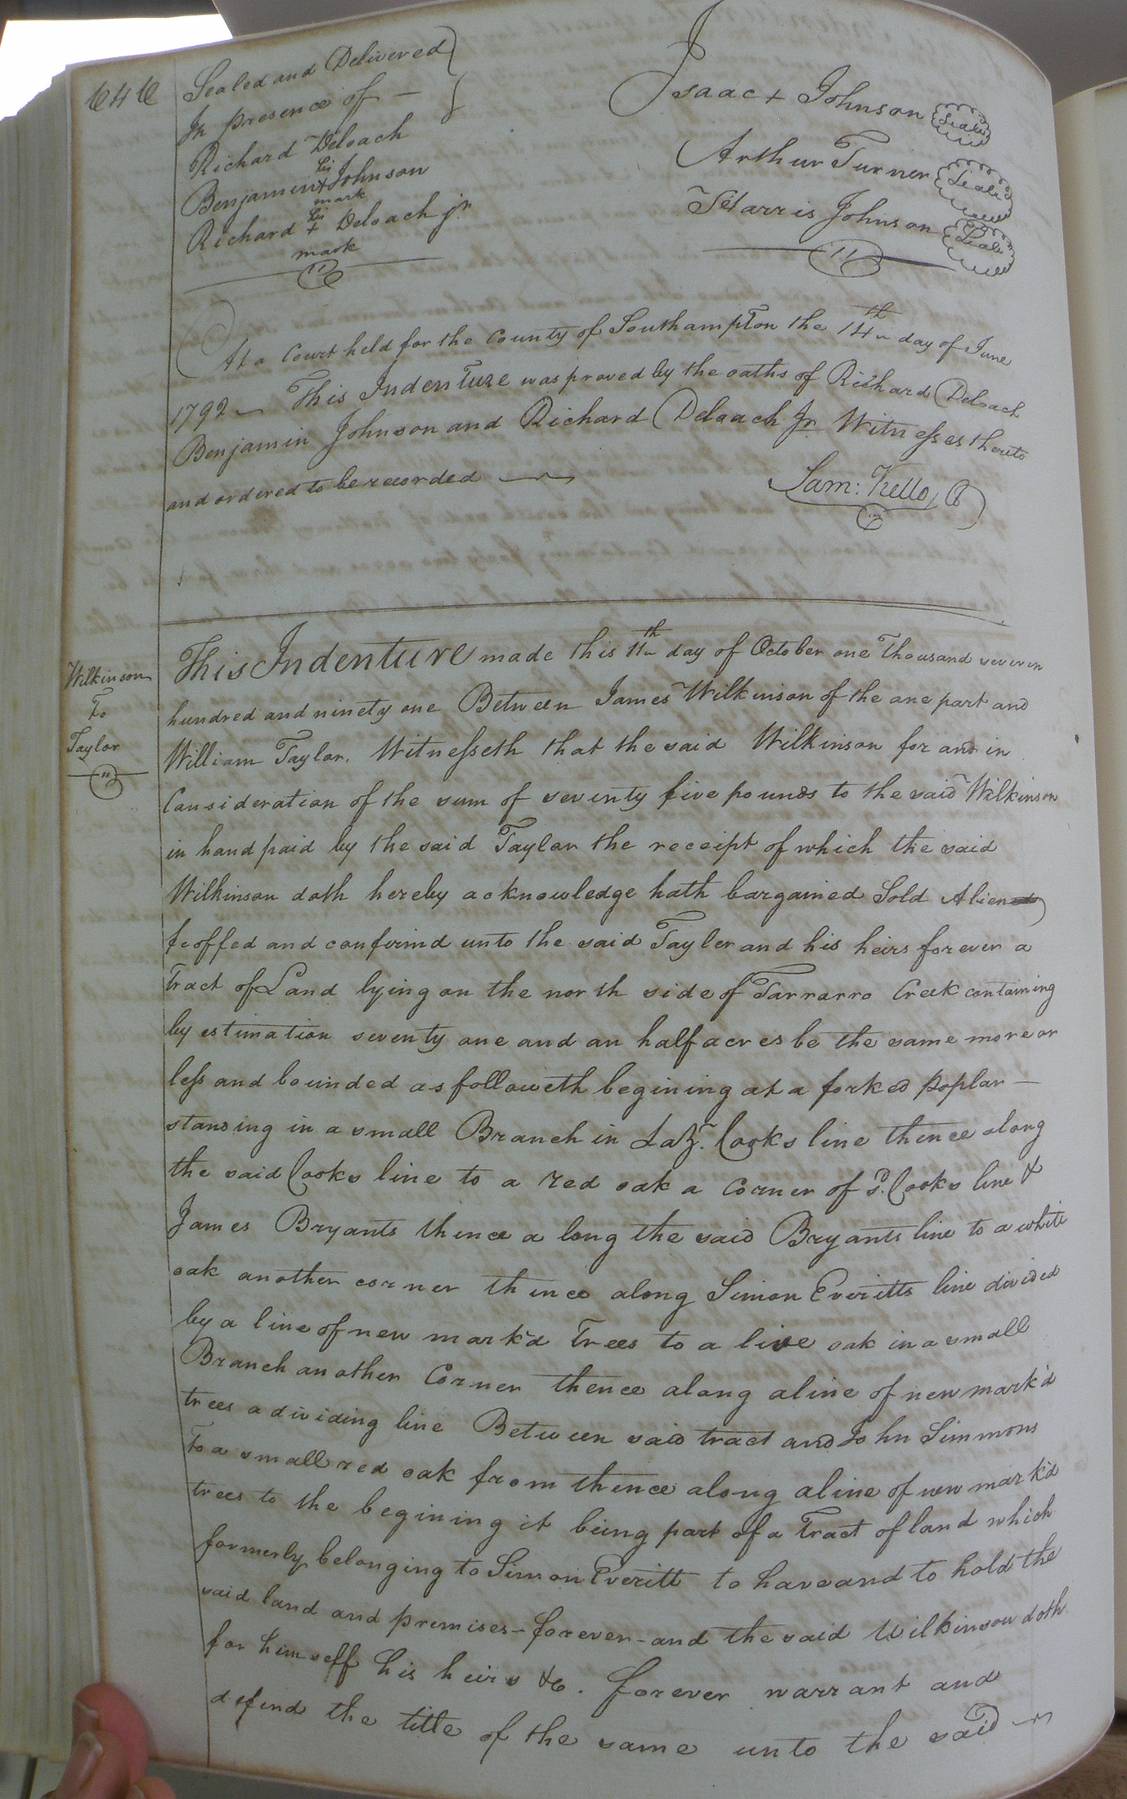 646
Sealed and Delivered
In presence of —
Richard Deloach
his
Benjamin + Johnson
mark
his
Richard + Deloach jr
mark
Isaac + Johnson Seal
Arthur Turner Seal
Harris Johnson Seal
At a Court held for the County of Southampton the 14th day of June
1792 — This Indenture was proved by the oaths of Richard Deloach
Benjamin Johnson and Richard Deloach Jr Witnesses thereto
and ordered to be recorded —
Sam: Kello, C
Wilkinson
To
Taylor
This Indenture made this 11th day of October one Thousand seveven
hundred and ninety one Between James Wilkinson of the one part and
William Taylor. Witnesseth that the said Wilkinson for and in
Consideration of the sum of seventy five pounds to the said Wilkinson
in hand paid by the said Taylor the receipt of which the said
Wilkinson doth hereby acknowledge hath bargained Sold Aliened
feoffed and confirmd unto the said Tayler and his heirs forever a
Tract of Land lying on the north side of Tarrarro Creek containing
by estimation seventy one and an half acres be the same more or
less and bounded as followeth begining at a forked poplar —
standing in a small Branch in Lazr. Cooks line thence along
the said Cooks line to a red oak a corner of sd. Cooks line &
James Bryants thence a long the said Bryants line to a white
oak another corner thence along Simon Everitts line divided
by a line of new mark'd trees to a live oak in a small
Branch another Corner thence along a line of new mark'd
trees a dividing line Between said tract and John Simmons
to a small red oak from thence along a line of new mark'd
trees to the begining it being part of a Tract of land which
formerly belonging to Simon Everitt to have and to hold the
said land and premises – forever – and the said Wilkinson doth
for himself his heirs &c. forever warrant and
defend the title of the same unto the said —